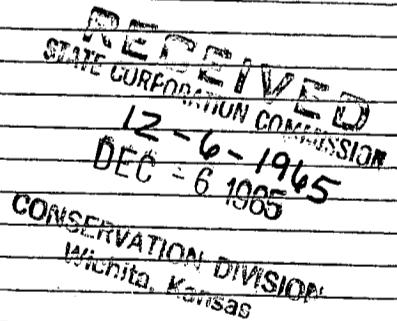 RECEIVED
STATE CORPORATION COMMISSION
12-6-1965
DEC - 6 1965
CONSERVATION DIVISION
Wichita, Kansas